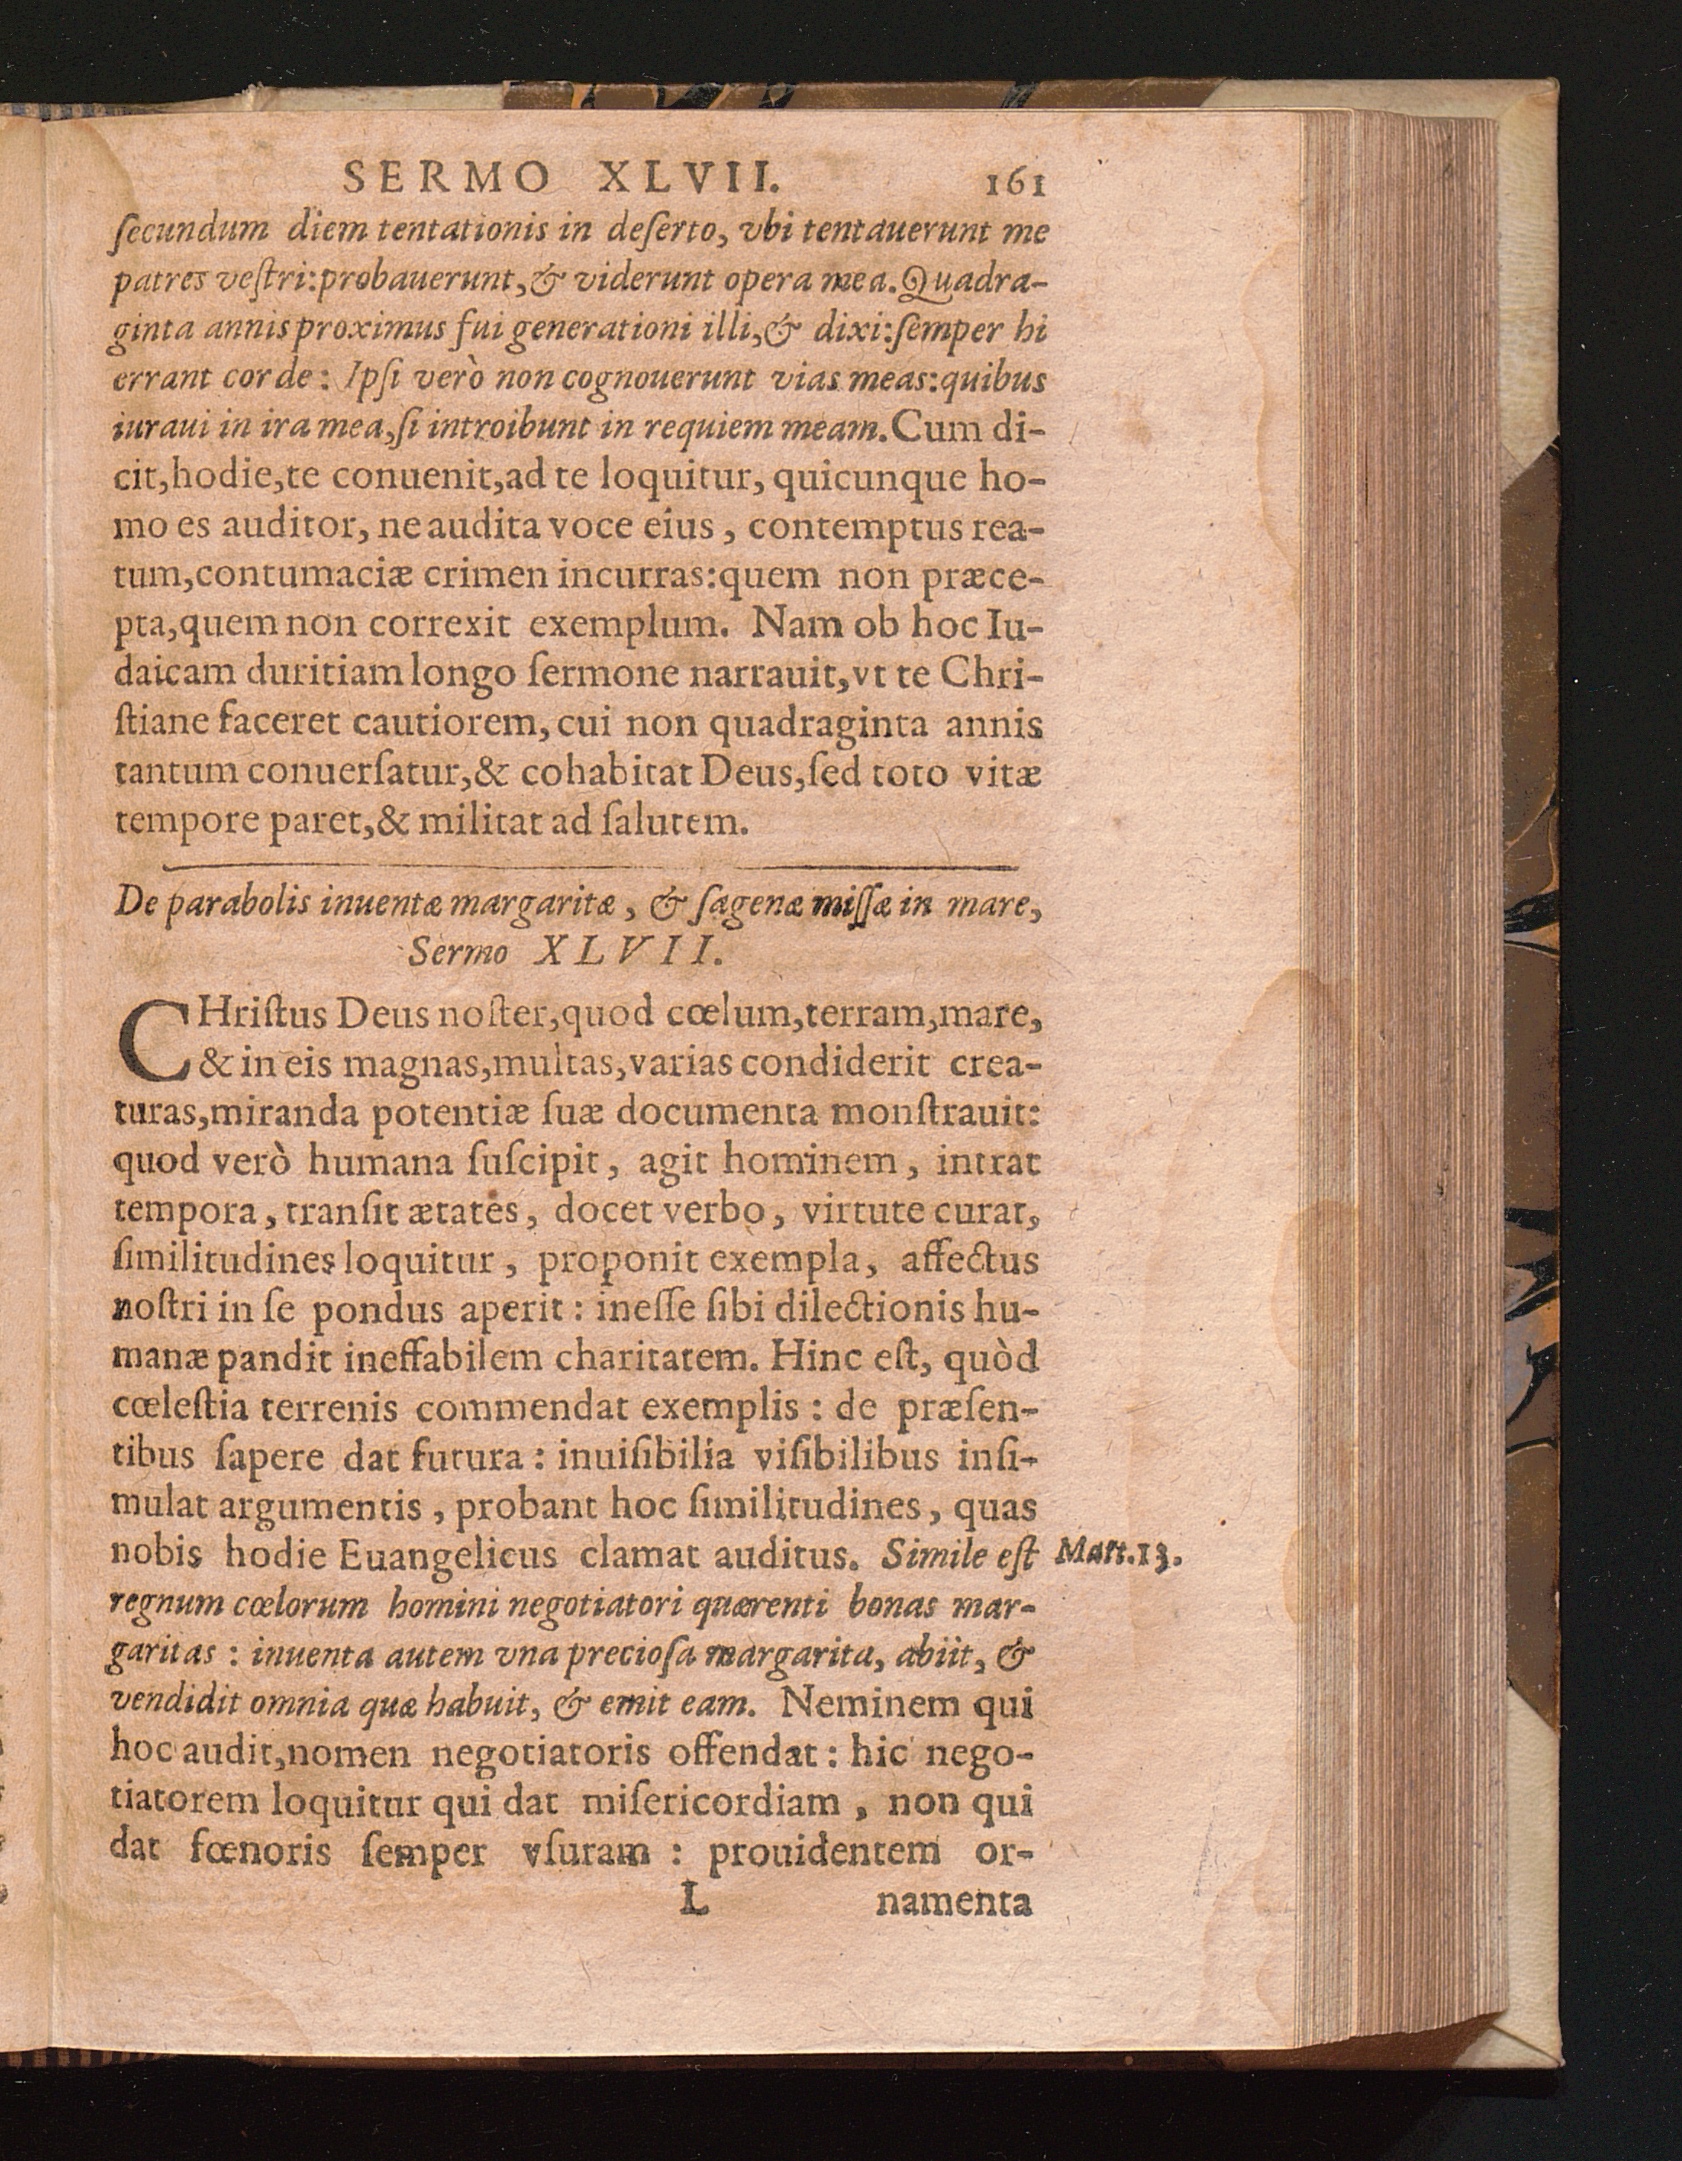 SERMO XLVII. 161
ſecundum diem tentationis in deſerto, vbi tentauerunt me
patres veſtri:probauerunt,& viderunt opera mea.Quadra-
ginta annis proximus fui generationi illi,& dixi:ſemper hi
errant corde: Ipſi verò non cognouerunt vias meas:quibus
iuraui in ira mea,ſi introibunt in requiem meam.Cum di-
cit,hodie,te conuenit,ad te loquitur, quicunque ho-
mo es auditor, ne audita voce eius, contemptus rea-
tum,contumaciæ crimen incurras:quem non præce-
pta,quem non correxit exemplum. Nam ob hoc Iu-
daicam duritiam longo ſermone narrauit,vt te Chri-
ſtiane faceret cautiorem, cui non quadraginta annis
tantum conuerſatur,& cohabitat Deus,ſed toto vitæ
tempore paret,& militat ad ſalutem.
De parabolis inuentæ margaritæ, & ſagenæ miſſæ in mare,
Sermo XLVII.
CHriſtus Deus noſter,quod cœlum,terram,mare,
& in eis magnas,multas,varias condiderit crea-
turas,miranda potentiæ ſuæ documenta monſtrauit:
quod verò humana ſuſcipit, agit hominem, intrat
tempora, tranſit ætates, docet verbo, virtute curat,
ſimilitudines loquitur, proponit exempla, affectus
noſtri in ſe pondus aperit: ineſſe ſibi dilectionis hu-
manæ pandit ineffabilem charitatem. Hinc eſt, quòd
cœleſtia terrenis commendat exemplis: de præſen-
tibus ſapere dat futura: inuiſibilia viſibilibus inſi-
mulat argumentis, probant hoc ſimilitudines, quas
nobis hodie Euangelicus clamat auditus. Simile eſt Matt.13.
regnum cœlorum homini negotiatori quærenti bonas mar-
garitas: inuenta autem vna precioſa margarita, abiit, &
vendidit omnia quæ habuit, & emit eam. Neminem qui
hoc audit,nomen negotiatoris offendat: hic nego-
tiatorem loquitur qui dat miſericordiam, non qui
dat fœnoris ſemper vſuram: prouidentem or-
L namenta